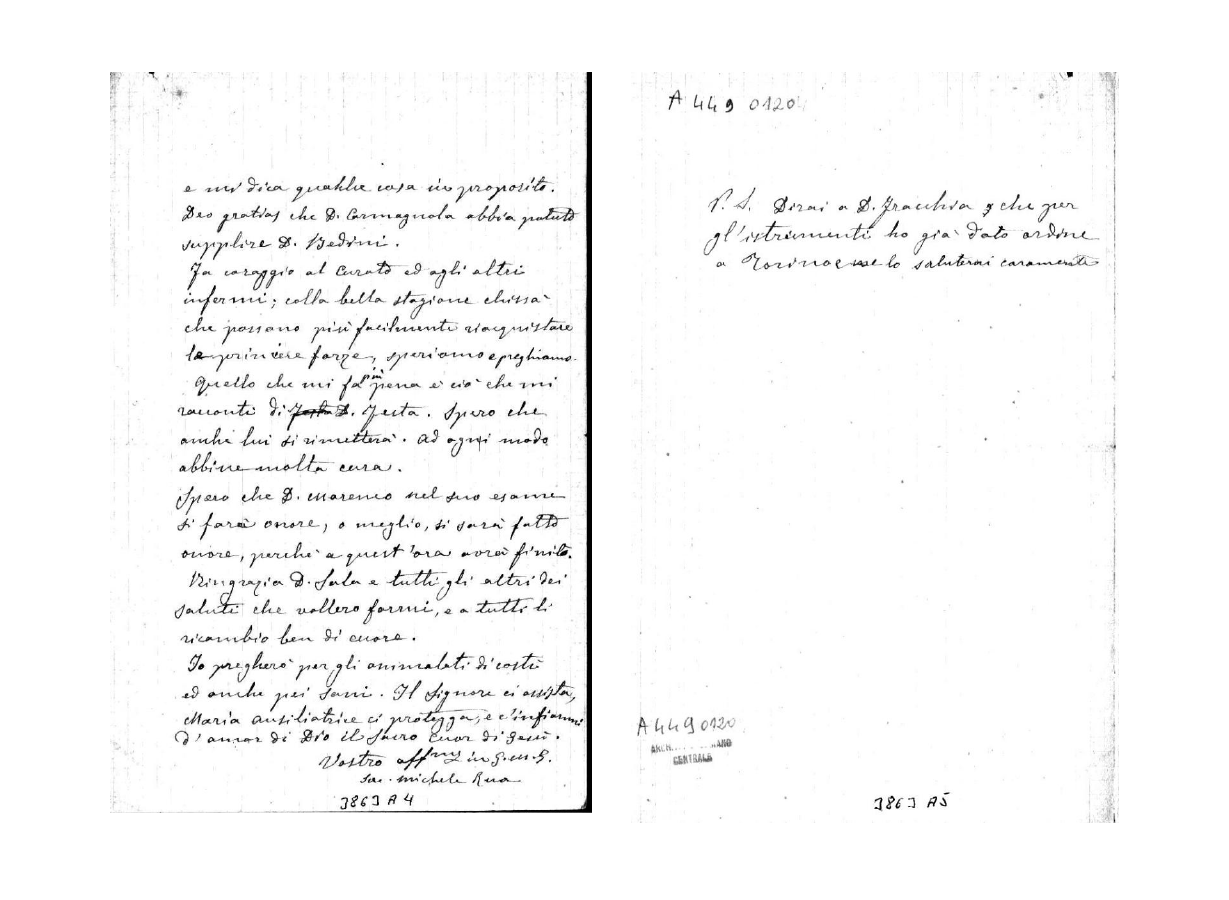 e mi dica qualche cosa in proposito.
Deo gratias che D. Carmagnola abbia potuto
supplire D. Bedini.
Fa coraggio al Curato ed agli altri
infermi; colla bella stagione chissà
che possano più facilmente riacquistare
le primiere forze, speriamo e preghiamo.
Quello che mi fa più pena è ciò che mi
racconti di D. Festa. Spero che
anche lui si rimetterà. Ad ogni modo
abbine molta cura.
Spero che D. Marenco nel suo esame
si farà onore, o meglio, si sarà fatto
onore, perchè a quest'ora avrà finito.
Ringrazia D. Sala e tutti gli altri dei
saluti che vollero farmi, e a tutti li
ricambio ben di cuore.
Io pregherò per gli ammalati di costì
ed anche pei sani. Il Signore ci assista,
Maria ausiliatrice ci protegga, e c'infiammi
d'amor di Dio il Sacro Cuor di Gesù.
Vostro aff.mo in G. e M.
Sac. Michele Rua
3863 A 4
A 449 0120
P. S. Dirai a D. Fracchia che per
gl'istrumenti ho già dato ordine
a Torino e lo saluterai caramente
A 449 0120
CENTRALE
3863 A5